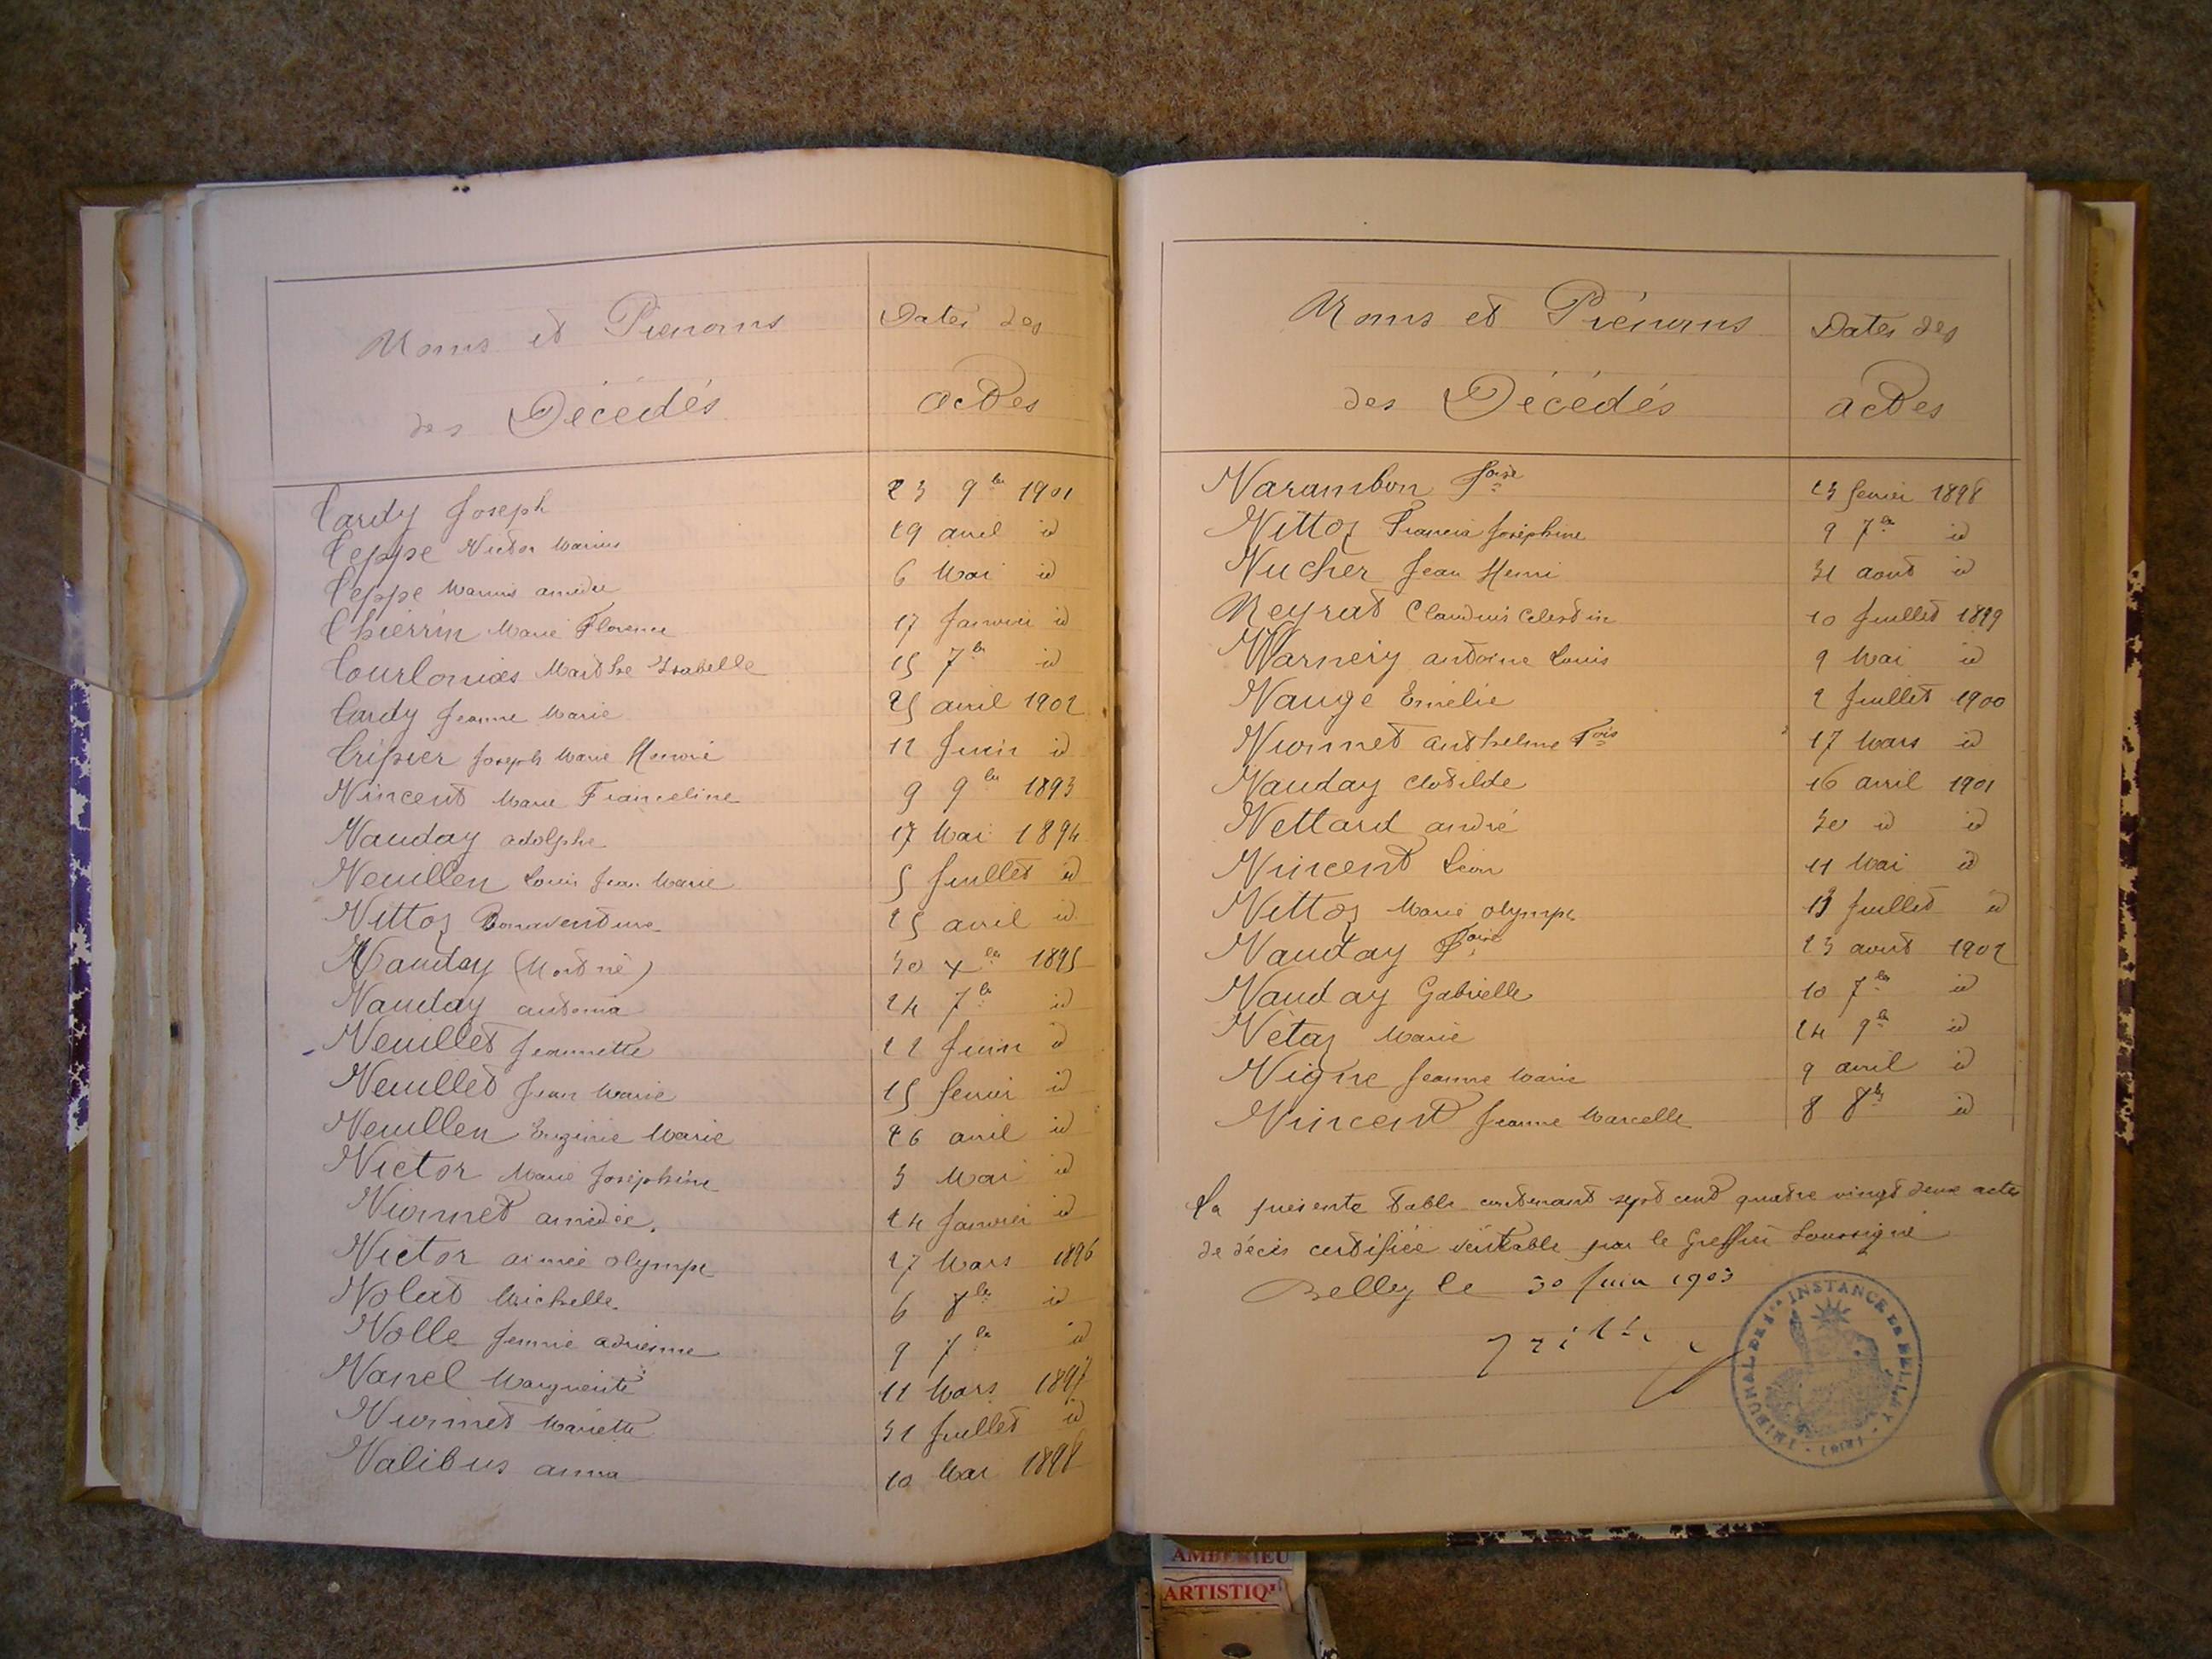 Noms et Prénoms
des Décédés
Dates des
actes
Tardy Joseph 23 9bre 1901
Teppe Victor Marius 19 avril id
Teppe Marius amédée 6 Mai id
Thierrin Marie Florence 17 Janvier id
Marthe Isabelle 15 7bre id
Tardy Jeanne Marie 25 avril 1902
Joseph Marie 12 Juin id
Vincent Marie Franceline 9 9bre 1893
Vauday adolphe 17 Mai 1894
Veuillen Louis Jean Marie 5 Juillet id
Vittoz Bonaventure 25 avril id
Vauday (Mort né) 30 Xbre 1895
Vauday antonia 24 7bre id
Veuillet Jeannette 22 Juin id
Veuillet Jean Marie 15 fevrier id
Veuillen Eugénie Marie 26 avril id
Victor Marie Joséphine 3 Mai id
Viornnet amédée. 24 Janvier id
Victor aimée olympe 27 Mars 1896
Volat Michelle 6 8bre id
Volle Jennie adrienne 9 7bre id
Vanel Marguerite 12 Mars 1897
Mariette 31 Juillet id
Valibus anna 10 Mai 1898
Noms et Prénoms
des Décédés
Dates des
actes
Varambon foise 23 fevrier 1898
Vittoz Francia Joséphine 9 7bre id
Vucher Jean Henri 31 aout id
Veyrat Claudius Celestin 10 Juillet 1899
Warnery antoine Louis 9 Mai id
Vaugé Emélie 2 Juillet 1900
anthelme Fois 17 Mars id
Vauday Clotilde 16 avril 1901
Vettard andré 30 id id
Vincent Léon 11 Mai id
Vittoz Marie olympe 13 Juillet id
Vauday Foise 23 aout 1902
Vauday Gabrielle 10 7bre id
Vétaz Marie 24 9bre id
Vigne Jeanne Marie 9 avril id
Vincent Jeanne Marcelle 8 8bre id
La présente table contenant sept cent quatre vingt deux actes
de décès certifiée véritable par le Greffier Soussigné
Belley le 30 Juin 1903
TRIBUNAL DE 1re INSTANCE DE BELLEY
AMBERIEU
ARTISTIQ